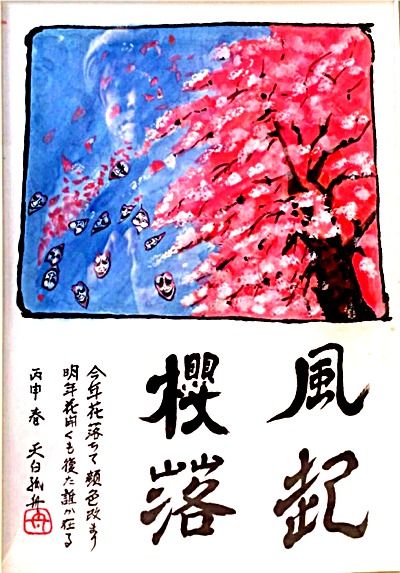 風起
櫻落
今年花落ちて顔色改まり
明年花開くも復た誰か在る
丙申 春 天白孤舟
舟